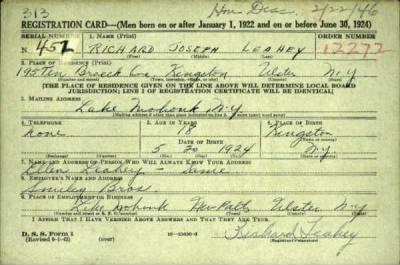 313 Hon Disc. 2/22/46
REGISTRATION CARD—(Men born on or after January 1, 1922 and on or before June 30, 1924)
SERIAL NUMBER 1. NAME (Print) ORDER NUMBER
N 452 RICHARD JOSEPH LEAHEY 12272
(First) (Middle) (Last)
2. PLACE OF RESIDENCE (Print)
195 Ten Broeck Ave, Kingston Ulster N-Y
(Number and street) (Town, township, village, or city) (County) (State)
[THE PLACE OF RESIDENCE GIVEN ON THE LINE ABOVE WILL DETERMINE LOCAL BOARD
JURISDICTION; LINE 2 OF REGISTRATION CERTIFICATE WILL BE IDENTICAL]
3. MAILING ADDRESS
Lake Mohonk N-Y
4. TELEPHONE 5. AGE IN YEARS 6. PLACE OF BIRTH
none 18 Kingston
DATE OF BIRTH
5 1924 N-Y
(Exchange) (Number) (Mo.) (Day) (Yr.) (State or country)
7. NAME AND ADDRESS OF PERSON WHO WILL ALWAYS KNOW YOUR ADDRESS
Ellen Leahey - same
8. EMPLOYER'S NAME AND ADDRESS
Smiley Bros.
9. PLACE OF EMPLOYMENT OR BUSINESS
Lake Mohonk New Paltz Ulster N-Y
(Number and street or R. F. D. number) (Town) (County) (State)
I AFFIRM THAT I HAVE VERIFIED ABOVE ANSWERS AND THAT THEY ARE TRUE.
D. S. S. Form 1
(Revised 6-1-42) (over) Richard Leahey
(Registrant's signature)